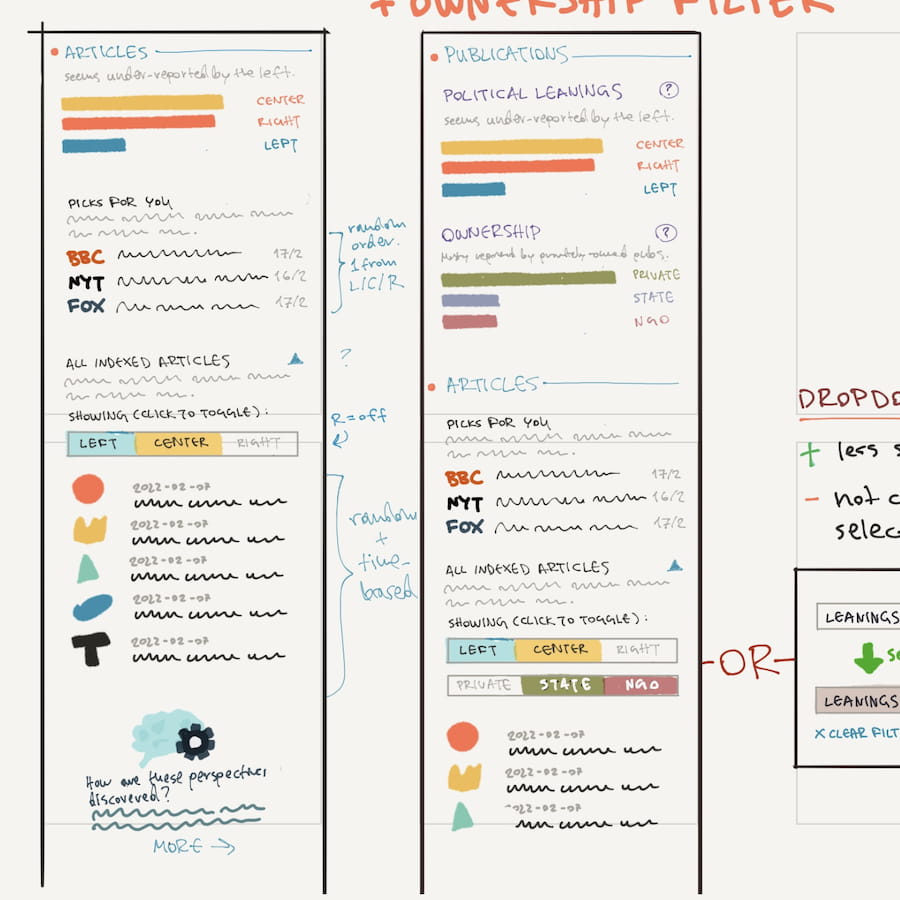 + OWNERSHIP FILTER
ARTICLES
seems under-reported by the left.
CENTER
RIGHT
LEFT
PICKS FOR YOU
BBC 17/2
NYT 16/2
FOX 17/2
random
order.
1 from
L/C/R
ALL INDEXED ARTICLES
?
SHOWING (CLICK TO TOGGLE):
R=off
LEFT CENTER RIGHT
2022-02-07
2022-02-07
2022-02-07
2022-02-07
2022-02-07
random
+
time-
based
How are these perspectives
discovered?
MORE →
PUBLICATIONS
POLITICAL LEANINGS ?
seems under-reported by the left.
CENTER
RIGHT
LEFT
OWNERSHIP ?
Mostly reported by privately owned pubs.
PRIVATE
STATE
NGO
ARTICLES
PICKS FOR YOU
BBC 17/2
NYT 16/2
FOX 17/2
ALL INDEXED ARTICLES
SHOWING (CLICK TO TOGGLE):
LEFT CENTER RIGHT
PRIVATE STATE NGO
2022-02-07
2022-02-07
2022-02-07
-OR-
+ less
- not
LEANINGS
LEANINGS
X CLEAR